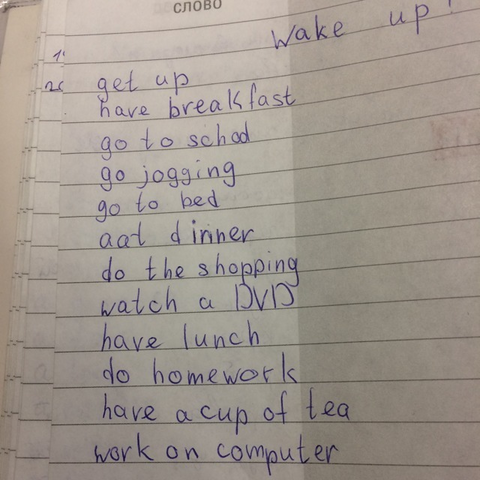 слово
Wake up!
get up
20 have breakfast
go to school
go jogging
go to bed
aat dinner
do the shopping
watch a DVD
have lunch
do homework
have a cup of tea
work on computer